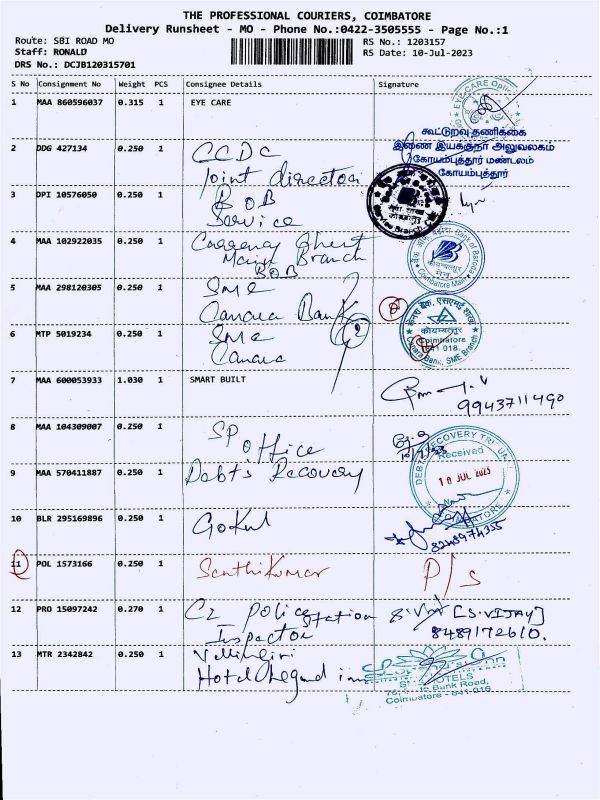 THE PROFESSIONAL COURIERS, COIMBATORE
Delivery Runsheet - MO - Phone No.:0422-3505555 - Page No.:1
Route: SBI ROAD MO
RS No.: 1203157
Staff: RONALD
RS Date: 10-Jul-2023
DRS No.: DCJB120315701
S No Consignment No Weight PCS Consignee Details Signature
1 MAA 860596037 0.315 1 EYE CARE
EYE CARE
கூட்டுறவு தணிக்கை
இணை இயக்குநர் அலுவலகம்
கோயம்புத்தூர் மண்டலம்
கோயம்புத்தூர்
2 DDG 427134 0.250 1 CCDC
Joint director
3 DPI 10576050 0.250 1 BOB
Service
4 MAA 102922035 0.250 1 Currency Chest
Main Branch
BOB
Bank of Baroda
Coimbatore Main
5 MAA 298120305 0.250 1 SME
Canara Bank
6 MTP 5019234 0.250 1 SME
Canara
Coimbatore
641 018.
Canara Bank, SME Branch
7 MAA 600053933 1.030 1 SMART BUILT
9943711490
8 MAA 104309007 0.250 1 SP Office
9 MAA 570411887 0.250 1 Debts Recovery
DEBTS RECOVERY TRIBUNAL
Received
10 JUL 2023
COIMBATORE
10 BLR 295169896 0.250 1 Gokul
8248974355
11 POL 1573166 0.250 1 Senthilkumar P/s
12 PRO 15097242 0.270 1 C2 Police Station [S.VIJAY]
Inspector 8489172610.
13 MTR 2342842 0.250 1
Hotel Legend inn
HOTELS
Bank Road,
Coimbatore - 641 018